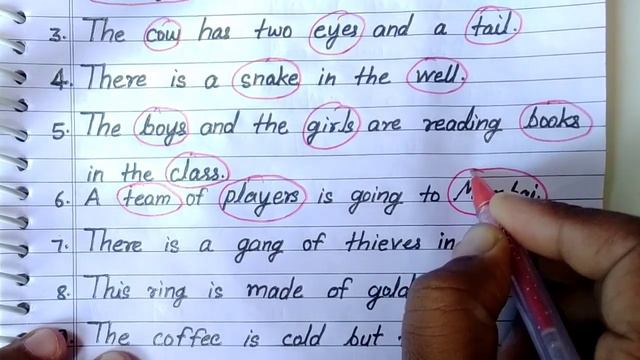 3. The cow has two eyes and a tail.
4. There is a snake in the well.
5. The boys and the girls are reading books
in the class.
6. A team of players is going to
7. There is a gang of thieves in
8. This ring is made of gold
The coffee is cold but